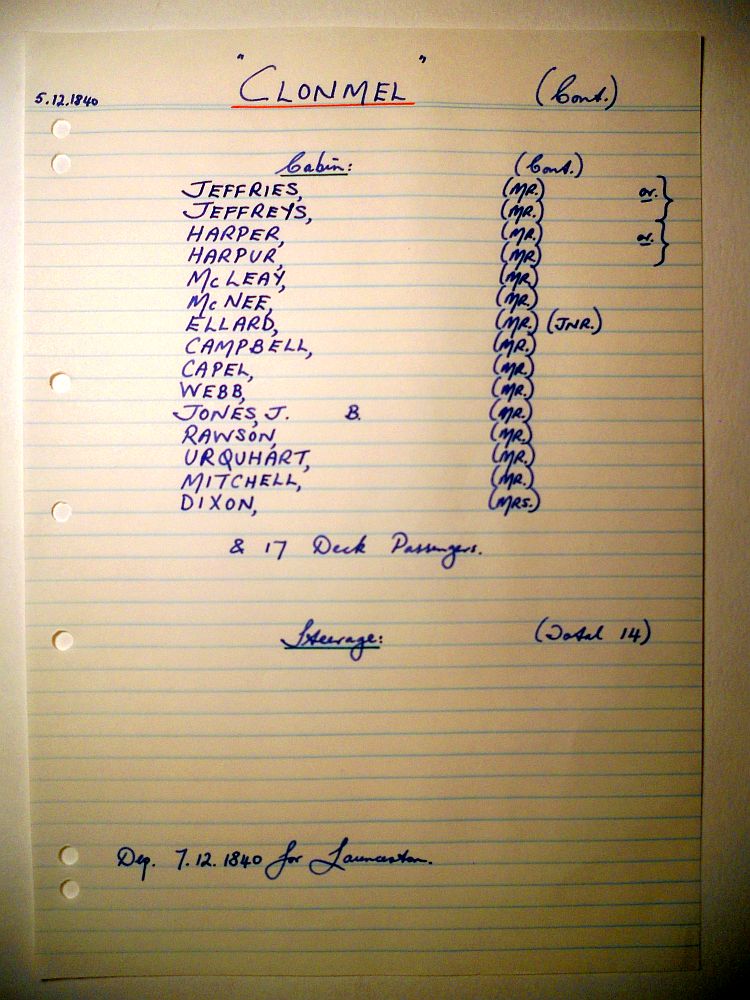 5.12.1840 "CLONMEL" (Cont.)
Cabin: (Cont.)
JEFFRIES, (MR.) or.
JEFFREYS, (MR.)
HARPER, (MR.) or.
HARPUR, (MR.)
McLEAY, (MR.)
McNEE, (MR.)
ELLARD, (MR.) (JNR.)
CAMPBELL, (MR.)
CAPEL, (MR.)
WEBB, (MR.)
JONES, J. B. (MR.)
RAWSON, (MR.)
URQUHART, (MR.)
MITCHELL, (MR.)
DIXON, (MRS.)
& 17 Deck Passengers.
Steerage: (Total 14)
Dep. 7.12.1840 for Launceston.